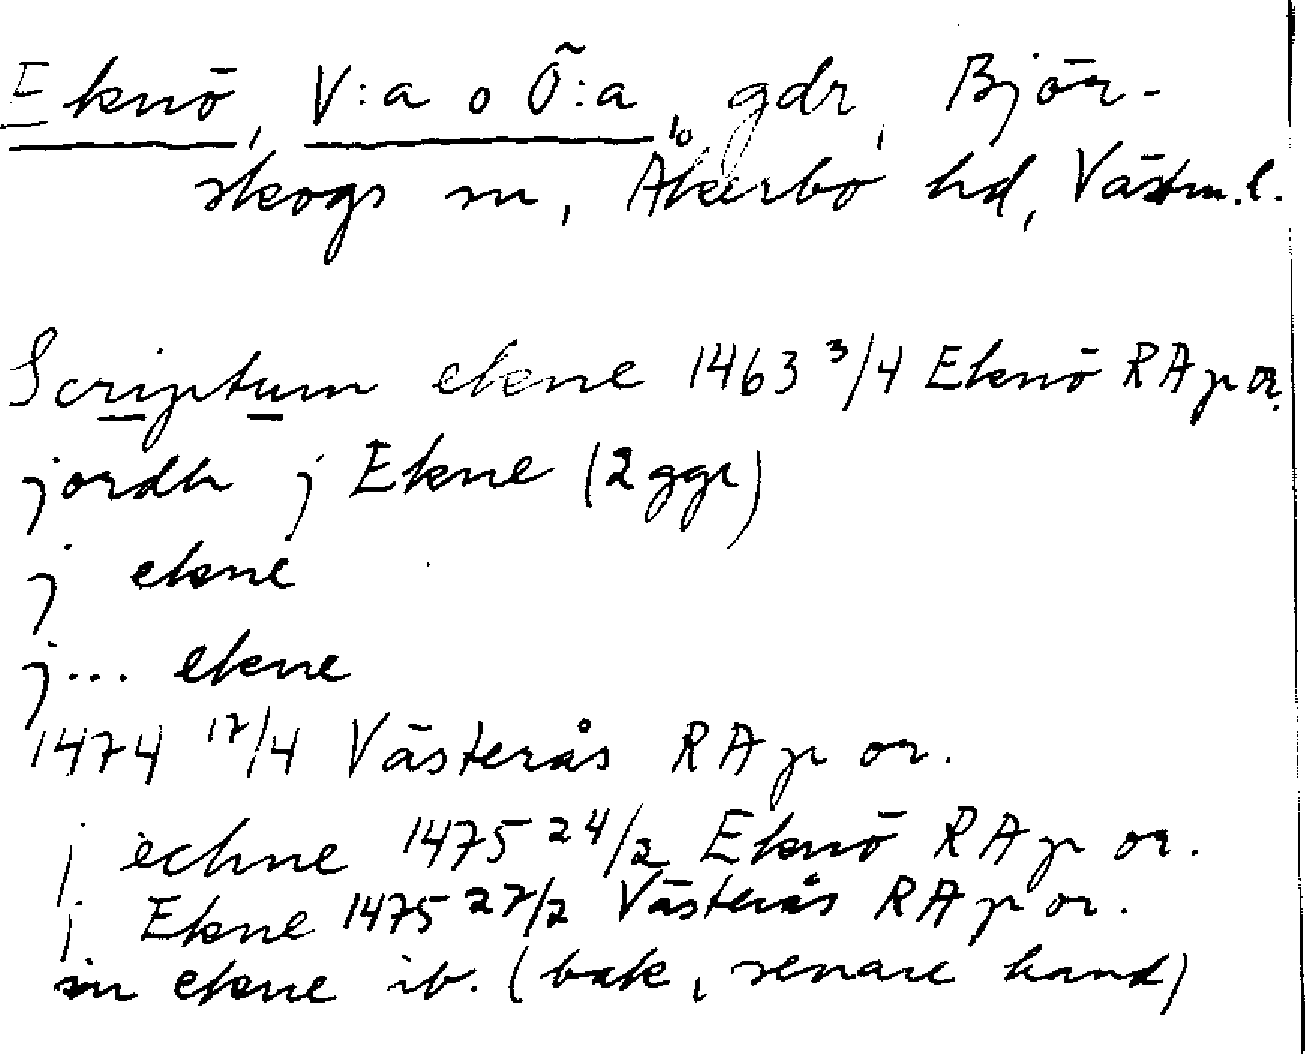 Eknö, V:a o Ö:a, gdr, Björ-
skogs sn, Åkerbo hd, Västm.l.
Scriptum ekne 1463 3/4 Eknö RA p or.
jordh j Ekne (2 ggr)
j ekne
j... ekne
1474 17/4 Västerås RA p or.
j echne 1475 24/2 Eknö RA p or.
j Ekne 1475 27/2 Västerås RA p or.
in ekne ib. (bak, senare hand)